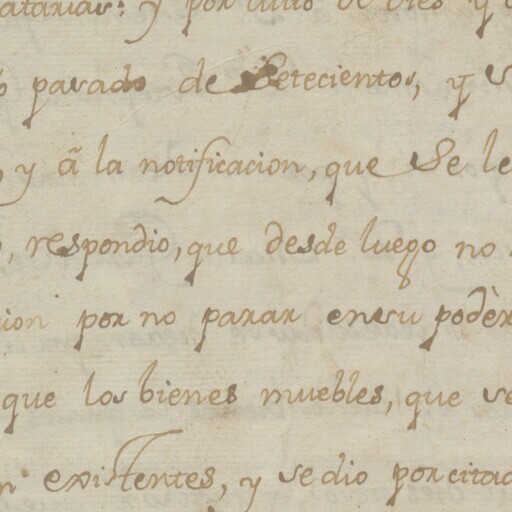 y por
o pasado de Setecientos, q
y â la notificacion, que Se le
respondio, que desde luego no
cion por no parar en su podèr
que los bienes muebles, que se
n existentes, y se dio por citad